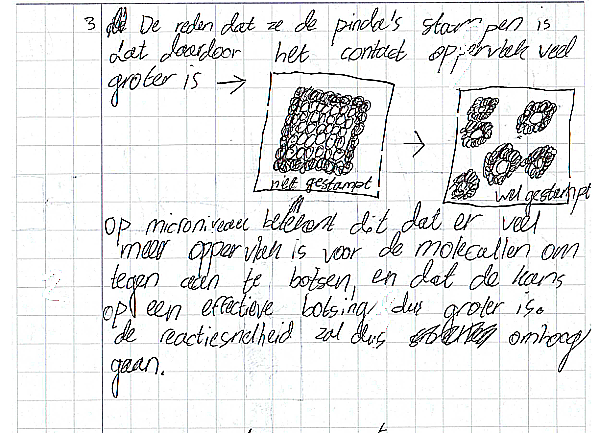 3 De reden dat ze de pinda's stampen is
dat daardoor het contact oppervlak veel
groter is →
niet gestampt
wel gestampt
Op microniveau betekent dit dat er veel
meer oppervlak is voor de moleculen om
tegen aan te botsen, en dat de kans
op een effectieve botsing dus groter is.
de reactiesnelheid zal dus omhoog
gaan.